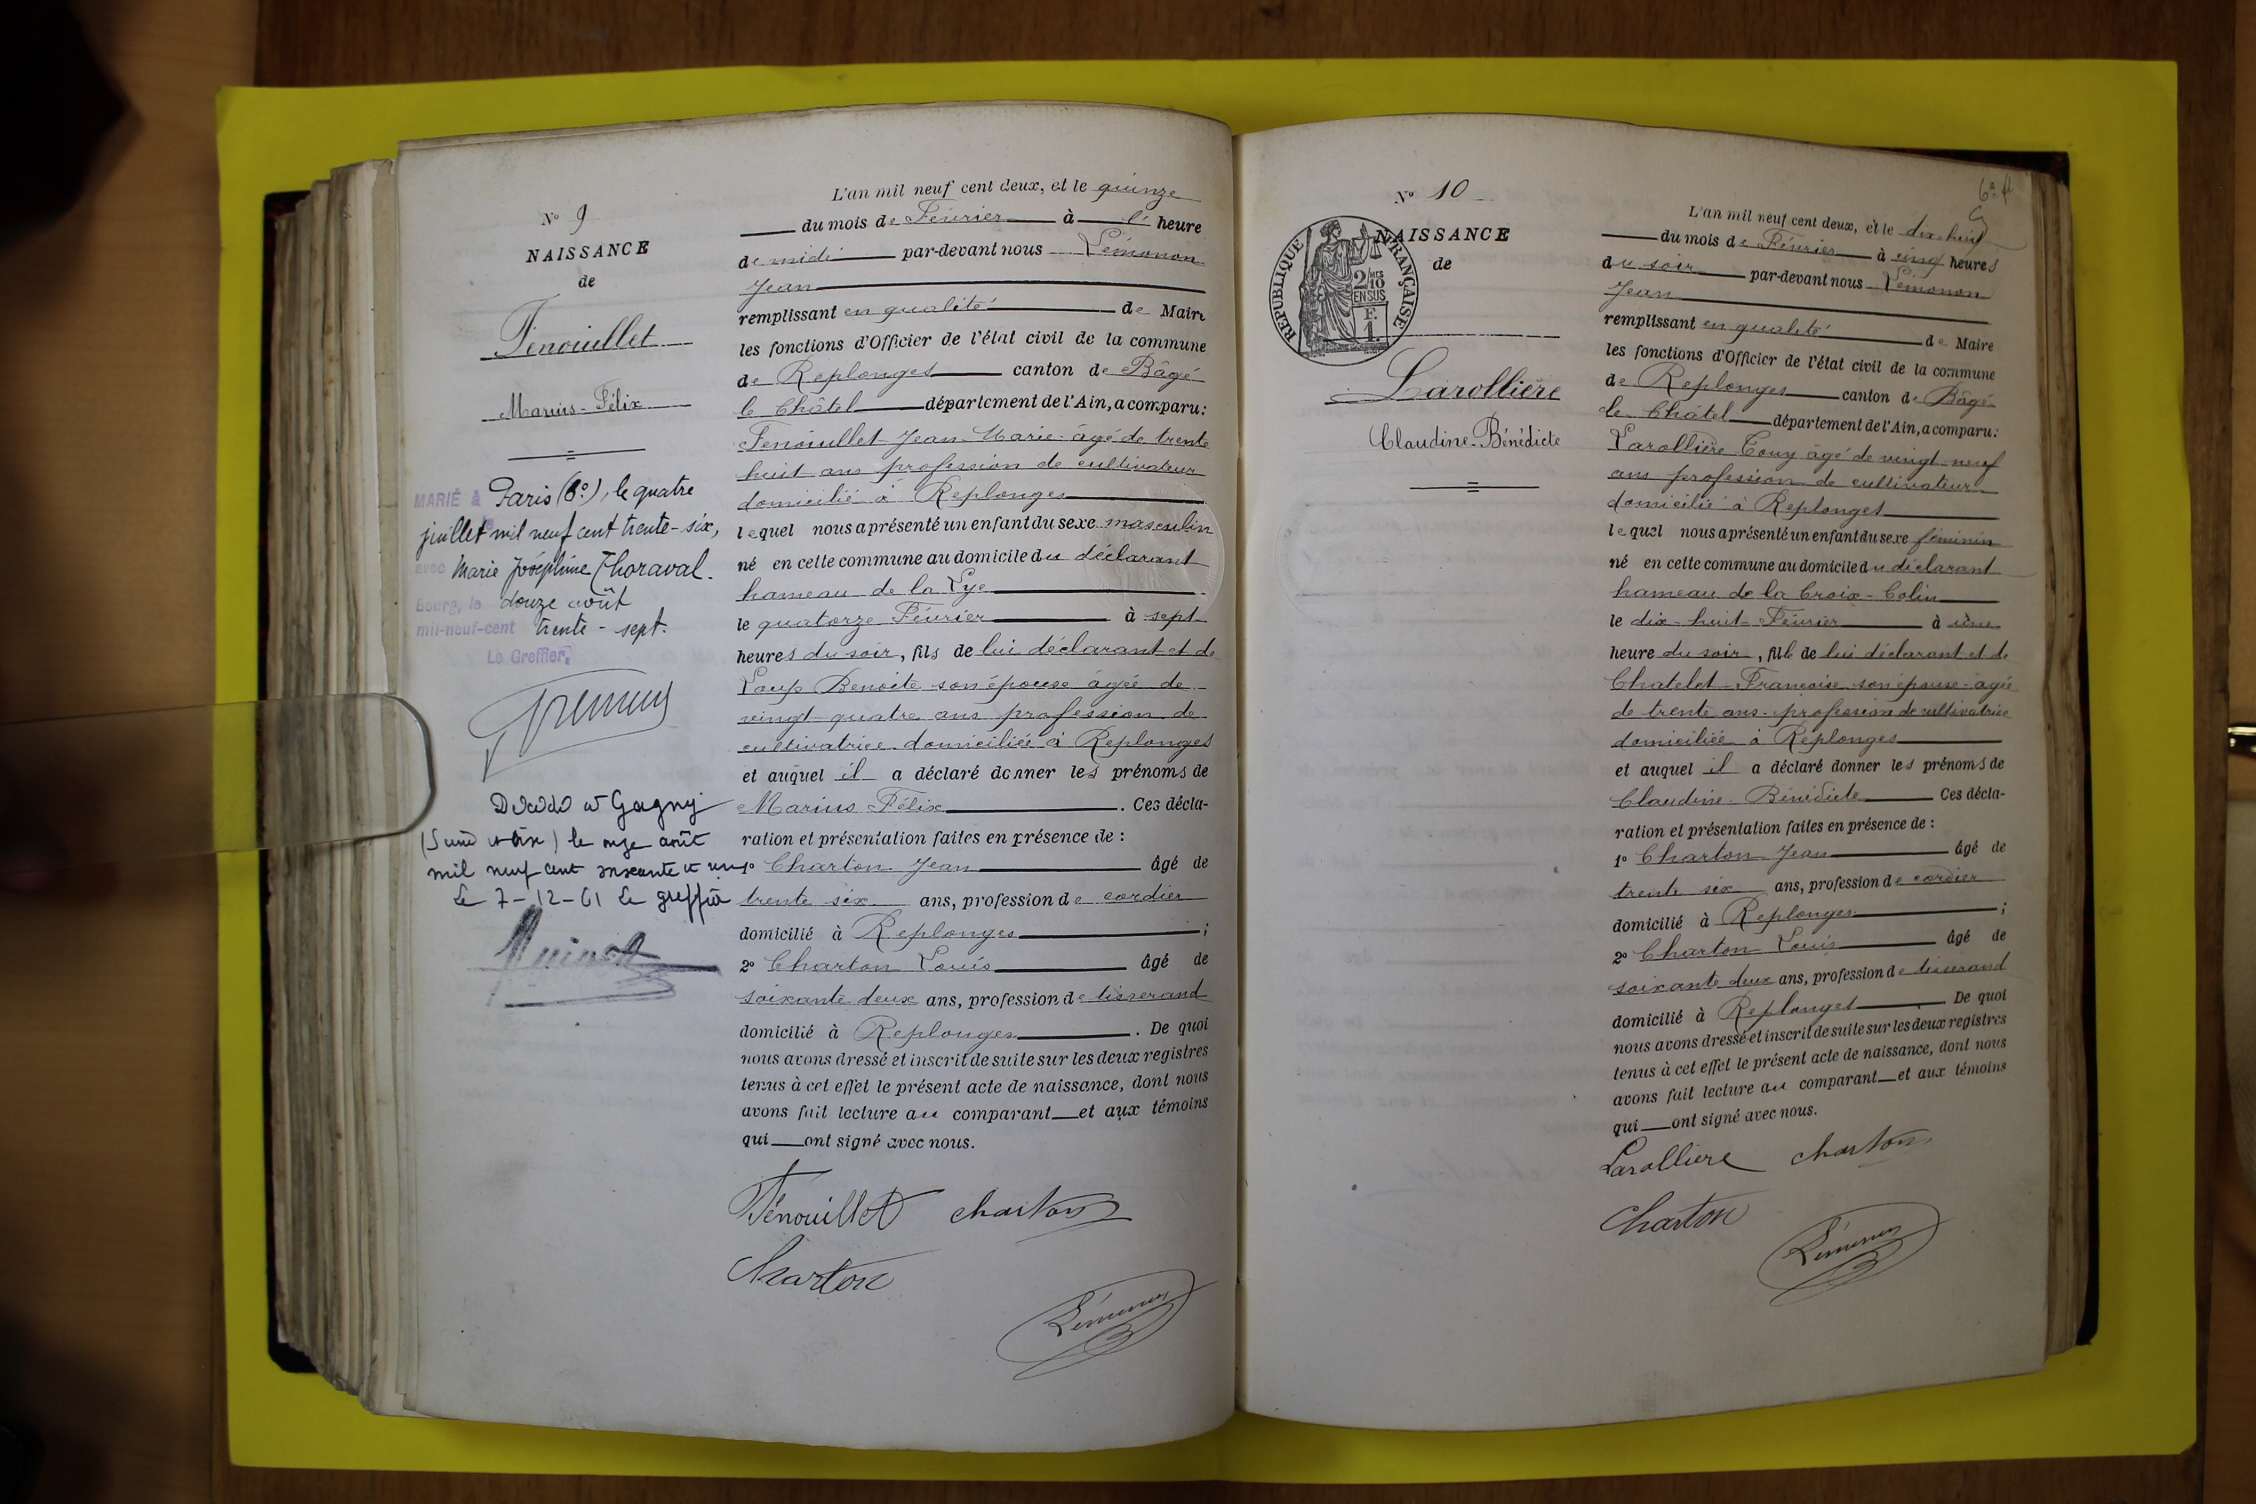 N° 9
NAISSANCE
de
Fenouillet
Marius-Félix
MARIÉ à Paris (6e), le quatre
juillet mil neuf cent trente-six,
avec Marie Joséphine Thoraval.
Bourg, le douze août
mil-neuf-cent trente-sept.
Le Greffier,
Décédé à Gagny
(Seine et Oise) le onze août
mil neuf cent soixante et un
Le 7-12-61 Le greffier
L'an mil neuf cent deux, et le quinze
du mois de Février à l' heure
de midi par-devant nous Lémonon
Jean
remplissant en qualité de Maire
les fonctions d'Officier de l'état civil de la commune
de Replonges canton de Bâgé
le Châtel département de l'Ain, a comparu:
Fenouillet Jean-Marie âgé de trente
huit ans profession de cultivateur
domicilié à Replonges
lequel nous a présenté un enfant du sexe masculin
né en cette commune au domicile du déclarant
hameau de la Lye
le quatorze Février à sept
heures du soir, fils de lui déclarant et de
Loup Benoite son épouse âgée de
vingt-quatre ans profession de
cultivatrice domiciliée à Replonges
et auquel il a déclaré donner les prénoms de
Marius Félix. Ces décla-
ration et présentation faites en présence de :
1° Charton Jean âgé de
trente six ans, profession de cordier
domicilié à Replonges ;
2° Charton Louis âgé de
soixante deux ans, profession de tisserand
domicilié à Replonges. De quoi
nous avons dressé et inscrit de suite sur les deux registres
tenus à cet effet le présent acte de naissance, dont nous
avons fait lecture au comparant et aux témoins
qui ont signé avec nous.
Fénouillet charton
Charton
Lémonon
N° 10
NAISSANCE
de
RÉPUBLIQUE FRANÇAISE
2/10 MES
EN SUS
F.
1.
Larollière
Claudine-Bénédicte
L'an mil neuf cent deux, et le dix-huit
du mois de Février à cinq heures
du soir par-devant nous Lémonon
Jean
remplissant en qualité de Maire
les fonctions d'Officier de l'état civil de la commune
de Replonges canton de Bâgé
le Châtel département de l'Ain, a comparu:
Larollière Tony âgé de vingt-neuf
ans profession de cultivateur
domicilié à Replonges
lequel nous a présenté un enfant du sexe féminin
né en cette commune au domicile du déclarant
hameau de la Croix-Colin
le dix-huit Février à une
heure du soir, fille de lui déclarant et de
Chatelet Françoise son épouse âgée
de trente ans profession de cultivatrice
domiciliée à Replonges
et auquel il a déclaré donner les prénoms de
Claudine-Bénédicte Ces décla-
ration et présentation faites en présence de :
1° Charton Jean âgé de
trente six ans, profession de cordier
domicilié à Replonges ;
2° Charton Louis âgé de
soixante deux ans, profession de tisserand
domicilié à Replonges De quoi
nous avons dressé et inscrit de suite sur les deux registres
tenus à cet effet le présent acte de naissance, dont nous
avons fait lecture au comparant et aux témoins
qui ont signé avec nous.
Larolliere charton
Charton
Lémonon